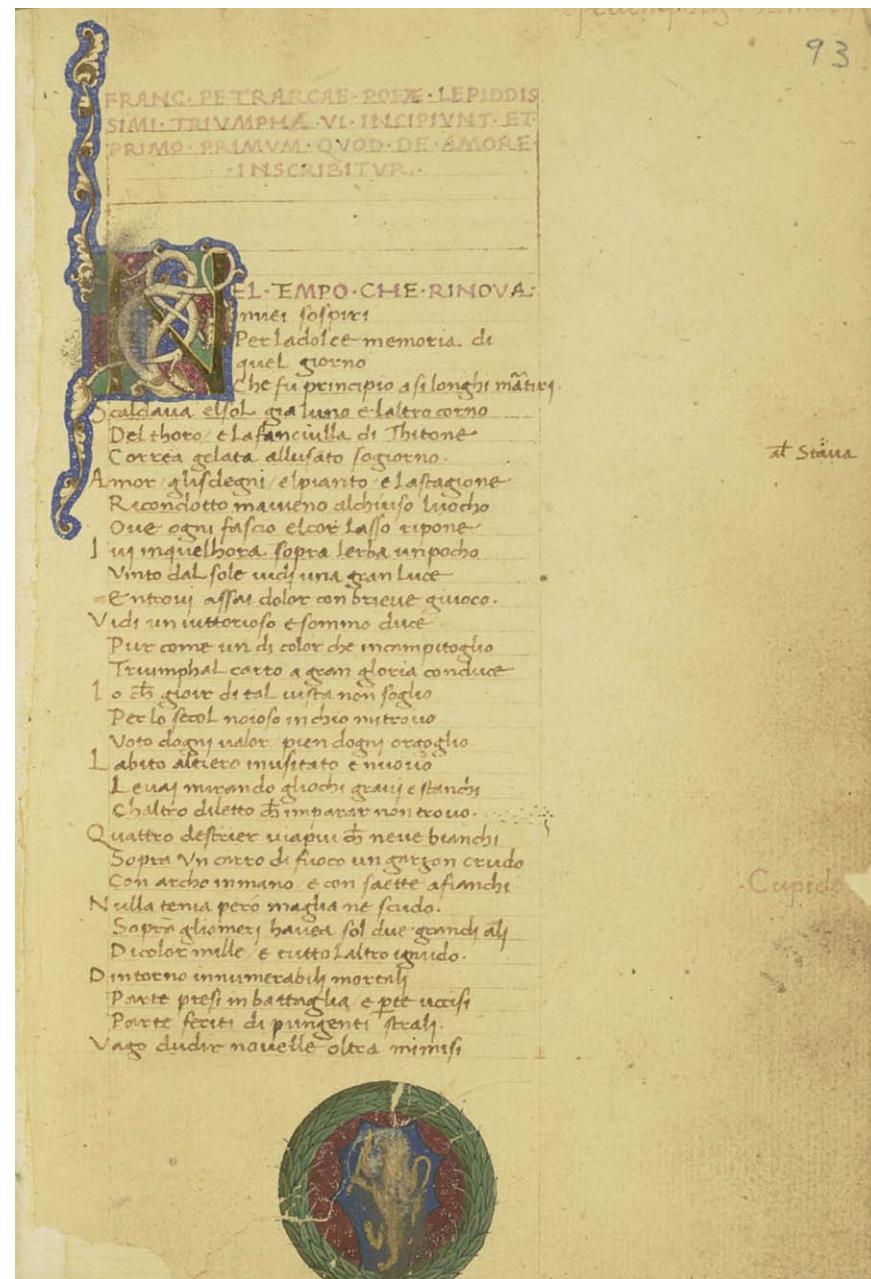 93
FRANC· PETRARCAE· POETÆ· LEPIDDIS
SIMI· TRIVMPHA· VI· INCIPIVNT· ET·
PRIMO· PRIMVM· QVOD· DE· AMORE·
·INSCRIBITVR·
NEL·TEMPO·CHE·RINOVA·
imiei sospiri
Per ladolce memoria di
quel giorno
Che fu principio asi longhi mãtiri·
Scaldava elsol gia luno e laltro corno
Del thoro / e lafanciulla di Thitone
Correa gelata allusato sogiorno·
al Stãua
Amor / glisdegni / elpianto / e lastagione
Ricondotto maueno alchiuso luocho
Oue ogni fascio elcor lasso ripone
Iui inquelhora sopra lerba unpocho
Vinto dal sole uidi una gran luce
Entroui assai dolor con brieue giuoco·
Vidi un iuttorioso e sommo duce
Pur come un di color che incampitoglio
Triumphal carro a gran gloria conduce
Io ch̃ gioir di tal uista non soglio
Per lo secol noioso inchio mitrouo
Voto dogni ualor / pien dogni orgoglio
Labito altiero inusitato e nuouo
Leuai mirando gliochi graui e stanchi
Chaltro diletto ch̃ imparar non trouo·
Quattro destrier uiapiu ch̃ neue bianchi
Sopra Vn carro di fuoco un garzon crudo
Con archo inmano / e con saette afianchi
·Cupido
Nulla tema pero maglia ne scudo·
Sopra gliomeri hauea sol due grandi alj
Dicolor mille / e tutto laltro ignudo·
Dintorno innumerabili mortali
Parte presi in battaglia / e p̱te uccisi
Parte feriti di pungenti strali·
Vago dudir nouelle oltra mimisi